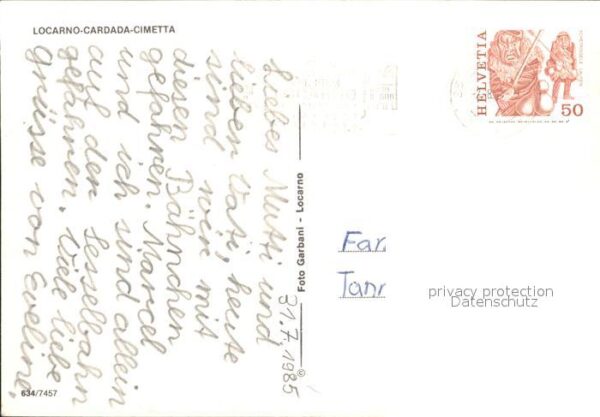 LOCARNO-CARDADA-CIMETTA
Liebes Mutti und
lieber Vati, heute
sind wir mit
diesen Bähnchen
gefahren. Marcel
und ich sind allein
auf der Sesselbahn
gefahren. Viele liebe
grüsse von Eveline.
31.7.1985
Foto Garbani - Locarno
634/7457
HELVETIA
50
Far
Tanr
privacy protection
Datenschutz